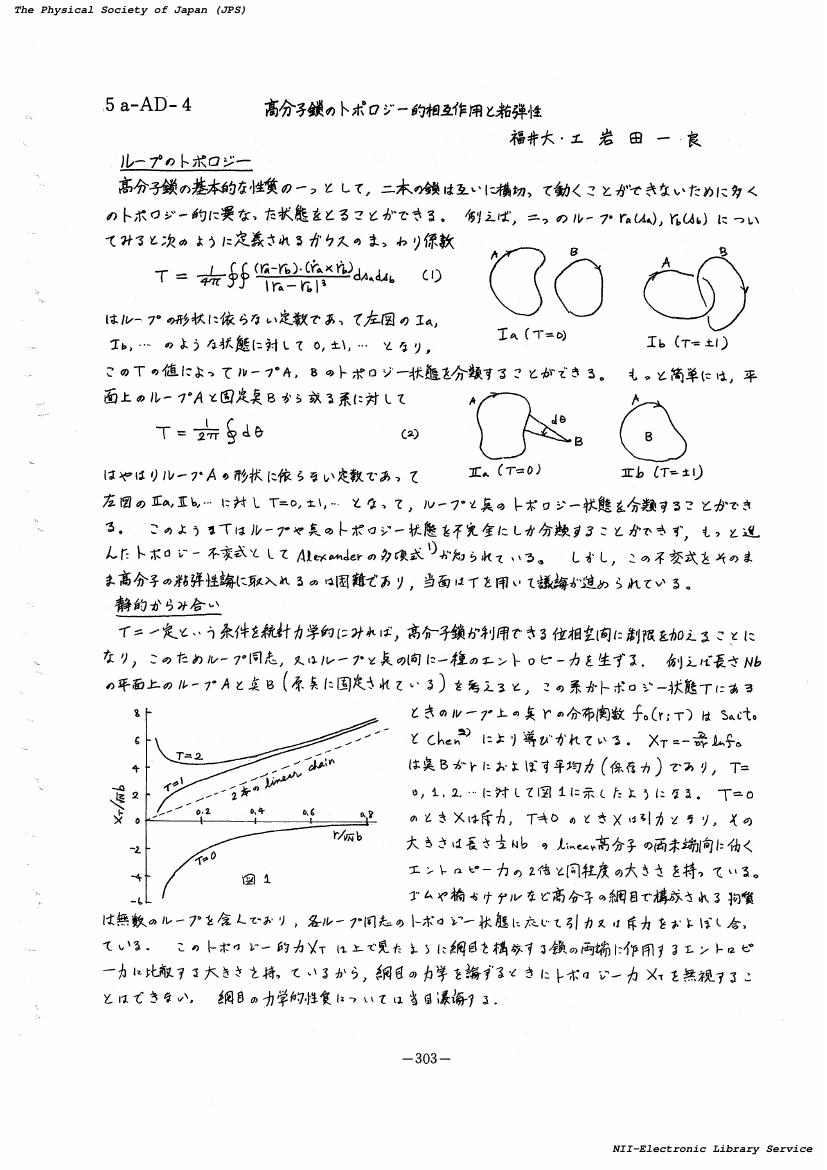 The Physical Society of Japan (JPS)
5a-AD-4 高分子鎖のトポロジー的相互作用と粘弾性
福井大・工 岩田一良
ループのトポロジー
高分子鎖の基本的な性質の一つとして,二本の鎖は互いに横切って動くことができないために多く
のトポロジー的に異なった状態をとることができる。 例えば,二つのループ ra(sa), rb(sb) につい
てみると次のように定義されるガウスのまつわり係数
T = 1/4π ∮∮ (ra−rb)·(ṙa×ṙb)/|ra−rb|³ dsa dsb (1)
A B
A B
Ia (T=0)
Ib (T=±1)
はループの形状に依らない定数であって左図の Ia,
Ib, … のような状態に対して 0, ±1, … となり,
このTの値によってループA, Bのトポロジー状態を分類することができる。 もっと簡単には,平
面上のループAと固定点Bから成る系に対して
T = 1/2π ∮ dθ (2)
A dθ B
A B
IIa (T=0)
IIb (T=±1)
はやはりループAの形状に依らない定数であって
左図の IIa, IIb, … に対し T=0, ±1, … となって,ループと点のトポロジー状態を分類することができ
る。 このようなTはループや点のトポロジー状態を不完全にしか分類することができず,もっと進
んだトポロジー不変式として Alexander の多項式1)が知られている。 しかし,この不変式をそのま
ま高分子の粘弾性論に取入れるのは困難であり,当面はTを用いて議論が進められている。
静的からみ合い
T=一定という条件を統計力学的にみれば,高分子鎖が利用できる位相空間に制限を加えることに
なり,このためループ同志,又はループと点の間に一種のエントロピー力を生ずる. 例えば長さNb
の平面上のループAと点B(原点に固定されている)を考えると,この系がトポロジー状態Tにある
ときのループ上の点rの分布関数 f₀(r;T) は Saito
と Chen2) により導びかれている. XT=−∂/∂r ln f₀
は点Bがrにおよぼす平均力(保存力)であり, T=
0, 1, 2 … に対して図1に示したようになる. T=0
のときXは斥力, T≠0 のときXは引力となり,その
大きさは長さ½Nb の linear高分子の両末端間に働く
エントロピー力の2倍と同程度の大きさを持っている。
8
6
4
2
0
-2
-4
-6
0.2 0.4 0.6 0.8
XT/√N b
r/√N b
T=2
T=1
T=0
2本の linear chain
図1
ゴムや橋かけゲルなど高分子の網目で構成される物質
は無数のループを含んでおり,各ループ同志のトポロジー状態に応じて引力又は斥力をおよぼし合っ
ている. このトポロジー的力XTは上で見たように網目を構成する鎖の両端に作用するエントロピ
ー力に比敵する大きさを持っているから,網目の力学を論ずるときにトポロジー力XTを無視するこ
とはできない. 網目の力学的性質については当日講論する.
−303−
NII-Electronic Library Service